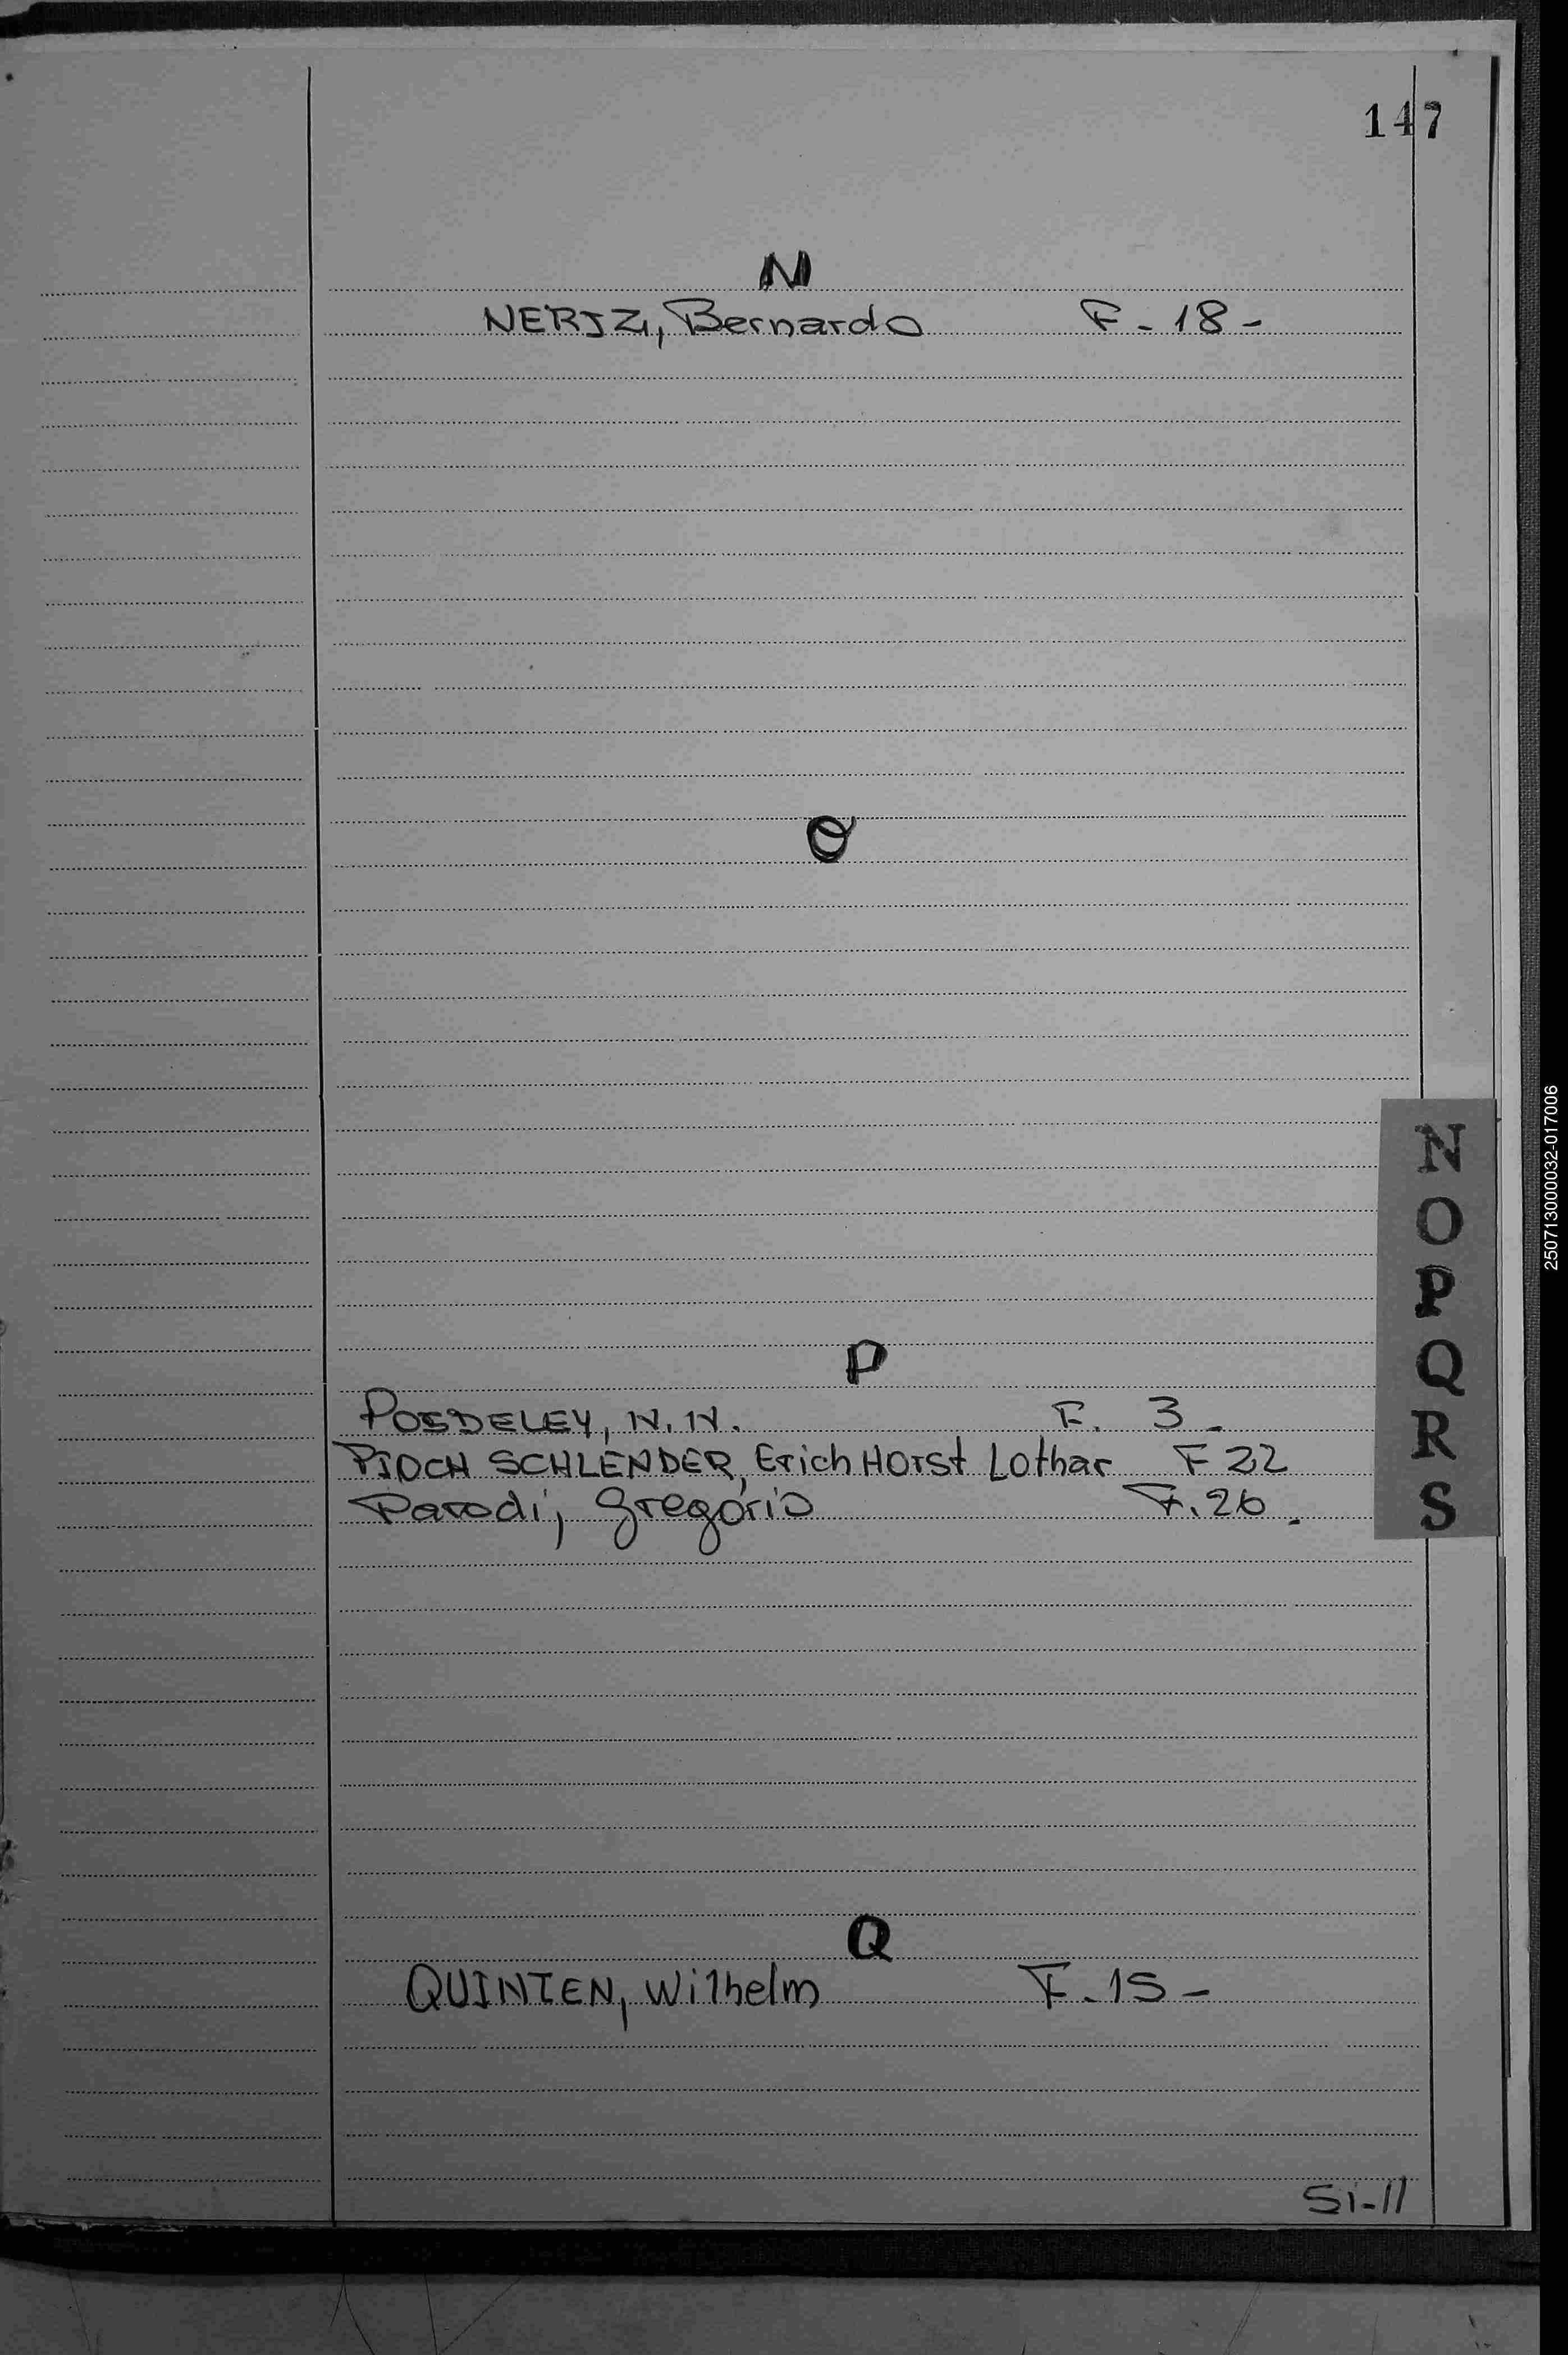 147
N
NERTZ, Bernardo F - 18 -
O
P
POSDELEY, N. N. F. 3 -
PIOCH SCHLENDER, Erich Horst Lothar F 22
Parodi, Gregório F. 26 .
Q
QUINTEN, Wilhelm F - 15 -
Si-//
N
O
P
Q
R
S
250713000032-017006